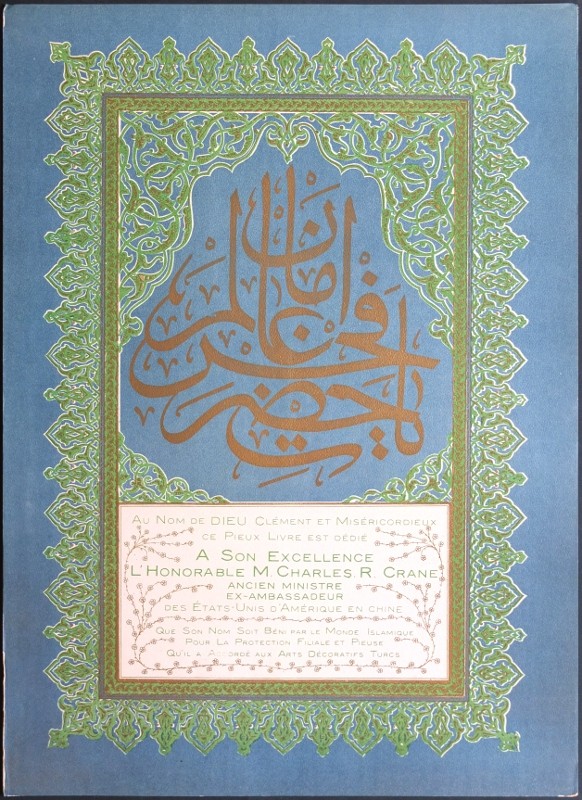 يا حضرت فخر عالم امان
AU NOM DE DIEU CLÉMENT ET MISÉRICORDIEUX
CE PIEUX LIVRE EST DÉDIÉ
A SON EXCELLENCE
L'HONORABLE M. CHARLES. R. CRANE
ANCIEN MINISTRE
EX-AMBASSADEUR
DES ÉTATS-UNIS D'AMÉRIQUE EN CHINE
QUE SON NOM SOIT BÉNI PAR LE MONDE ISLAMIQUE
POUR LA PROTECTION FILIALE ET PIEUSE
QU'IL A ACCORDÉ AUX ARTS DÉCORATIFS TURCS